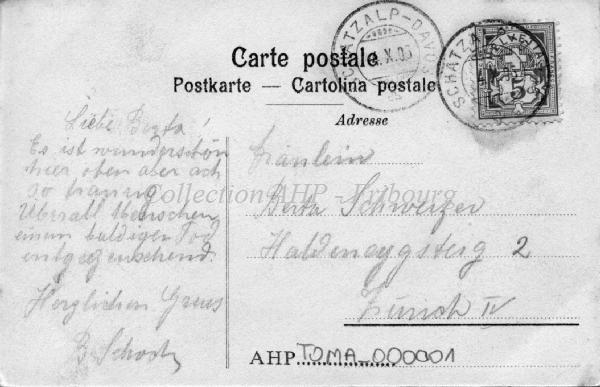 Carte postale
Postkarte — Cartolina postale
Adresse
SCHATZALP-DAVOS
X.05
SCHATZA
HELVETIA
5
Liebe Berta!
Es ist wunderschön
hier oben aber ach
so traurig
Überall Menschen
einem baldigen Tod
entgegensehend.
Herzlichen Gruss
B. Schoch
Fräulein
Berta Schweizer
2
Zürich IV
Collection AHP - Fribourg
AHP TOMA_000001